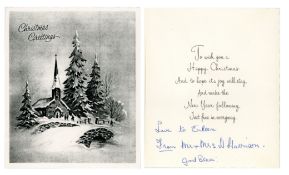 Christmas
Greetings
To wish you a
Happy Christmas
And to hope its joy will stay,
And make the
New Year following
Just fine in everyway.
Love to
From Mr & Mrs Harrison.